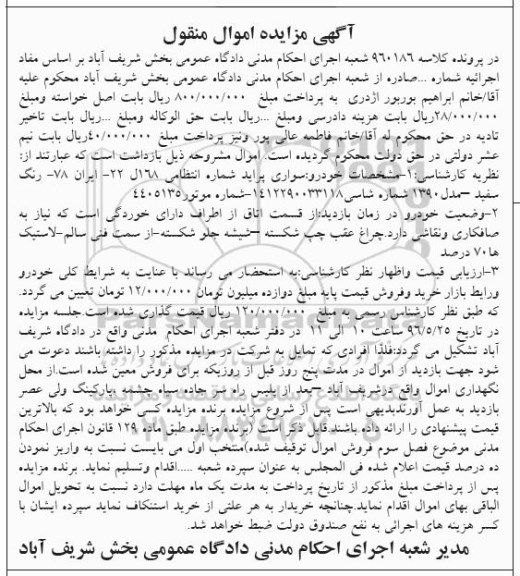 آگهی مزایده اموال منقول
در پرونده کلاسه ۹۶۰۱۸۶ شعبه اجرای احکام مدنی دادگاه عمومی بخش شریف آباد بر اساس مفاد
اجرائیه شماره ...صادره از شعبه اجرای احکام مدنی دادگاه عمومی بخش شریف آباد محکوم علیه
آقا/خانم ابراهیم بوربور اژدری  به پرداخت مبلغ ۸۰۰/۰۰۰/۰۰۰ ریال بابت اصل خواسته ومبلغ
۲۸/۰۰۰/۰۰۰ریال بابت هزینه دادرسی ومبلغ ...ریال بابت حق الوکاله ومبلغ ...ریال بابت تاخیر
تادیه در حق محکوم له آقا/خانم فاطمه عالی پور ونیز پرداخت مبلغ ۴۰/۰۰۰/۰۰۰ریال بابت نیم
عشر دولتی در حق دولت محکوم گردیده است. اموال مشروحه ذیل بازداشت است که عبارتند از:
نظریه کارشناسی:۱-مشخصات خودرو:سواری پراید شماره انتظامی ۱۶۸ل ۲۲- ایران ۷۸- رنگ
سفید –مدل۱۳۹۰ شماره شاسی۱۴۱۲۲۹۰۰۳۳۱۱۸-شماره موتور۴۴۰۵۱۳۵
۲-وضعیت خودرو در زمان بازدید:از قسمت اتاق از اطراف دارای خوردگی است که نیاز به
صافکاری ونقاشی دارد.چراغ عقب چپ شکسته –شیشه جلو شکسته-از سمت فنی سالم-لاستیک
ها۷۰ درصد
۳-ارزیابی قیمت واظهار نظر کارشناسی:به استحضار می رساند با عنایت به شرایط کلی خودرو
ورایط بازار خرید وفروش قیمت پایه مبلغ دوازده میلیون تومان ۱۲/۰۰۰/۰۰۰ تومان تعیین می گردد.
که طبق نظر کارشناس رسمی به مبلغ ۱۲۰/۰۰۰/۰۰۰ریال قیمت گذاری شده است.جلسه مزایده
در تاریخ ۹۶/۵/۲۵ ساعت ۱۰ الی ۱۱ در دفتر شعبه اجرای احکام مدنی واقع در دادگاه شریف
آباد تشکیل می گردد:فلذا افرادی که تمایل به شرکت در مزایده مذکور را داشته باشند دعوت می
شود جهت بازدید از اموال در مدت پنج روز قبل از روزیکه برای فروش معین شده است.از محل
نگهداری اموال واقع درشریف آباد –بعد از پلیس راه سر جاده سیاه چشمه پارکینگ ولی عصر
بازدید به عمل آورندبدیهی است پس از شروع مزایده برنده مزایده کسی خواهد بود که بالاترین
قیمت پیشنهادی را ارائه داده باشند.قابل ذکر است (برنده مزایده طبق ماده ۱۲۹ قانون اجرای احکام
مدنی موضوع فصل سوم فروش اموال توقیف شده)منتخب اول می بایست نسبت به واریز نمودن
ده درصد قیمت اعلام شده فی المجلس به عنوان سپرده شعبه .....اقدام وتسلیم نماید. برنده مزایده
پس از پرداخت مبلغ مذکور از تاریخ پرداخت به مدت یک ماه مهلت دارد نسبت به تحویل اموال
الباقی بهای اموال اقدام نماید.چنانچه خریدار به هر علتی از خرید استنکاف نماید سپرده ایشان با
کسر هزینه های اجرائی به نفع صندوق دولت ضبط خواهد شد.
مدیر شعبه اجرای احکام مدنی دادگاه عمومی بخش شریف آباد